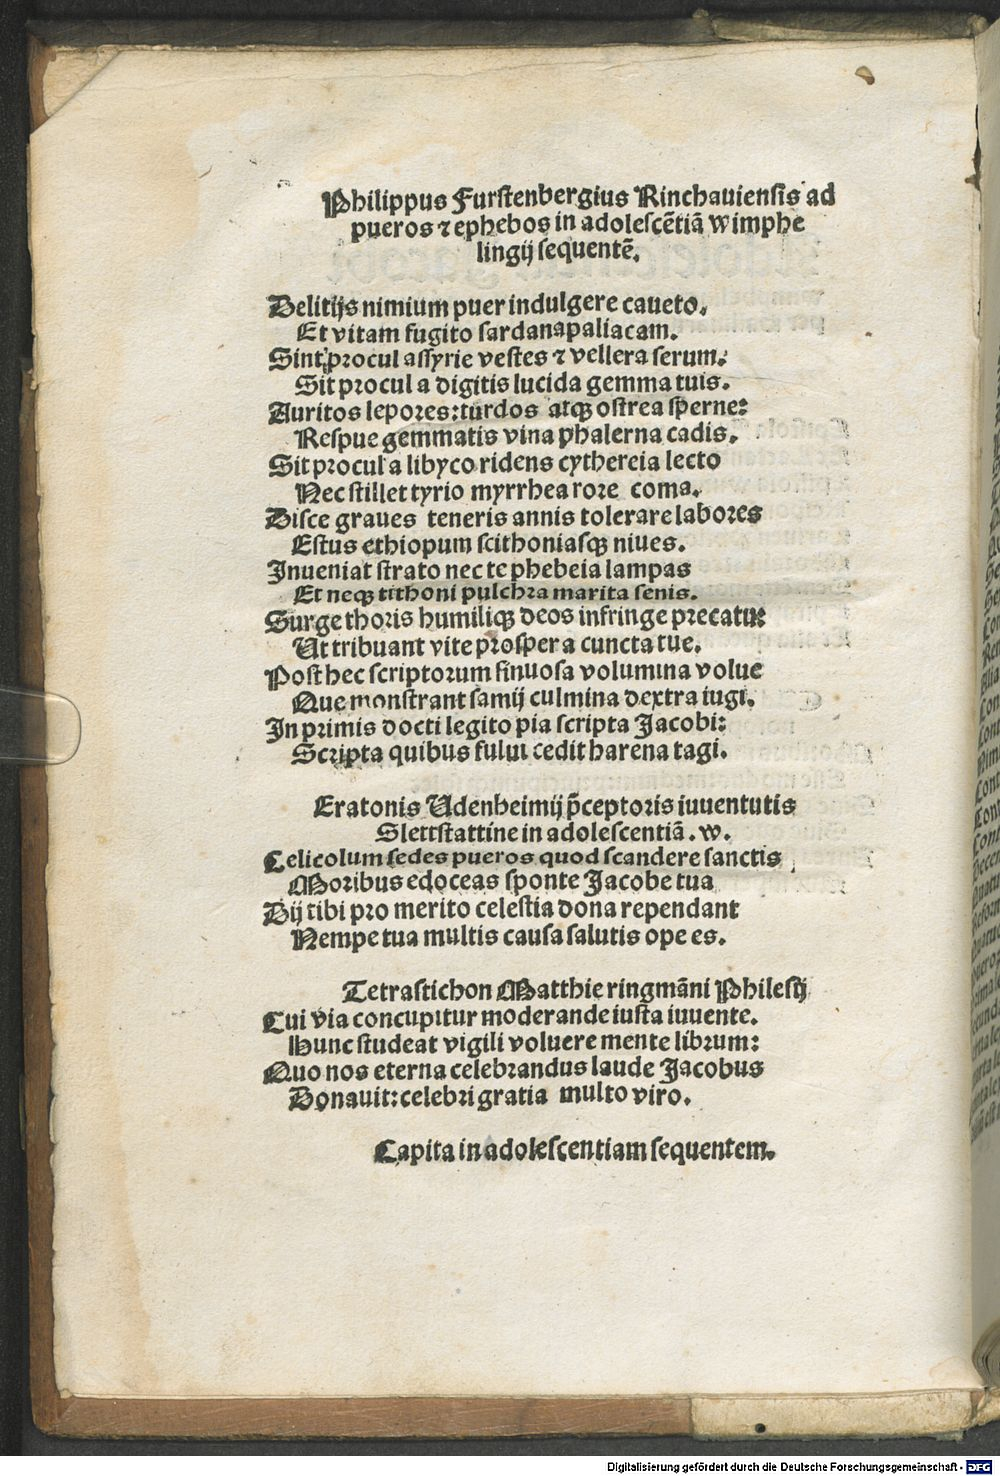 Philippus Furstenbergius Rinchauiensis ad
pueros ⁊ ephebos in adolescẽtiã Wimphe
lingij sequentẽ.
Delitijs nimium puer indulgere caueto.
Et vitam fugito sardanapaliacam.
Sintq̃ procul assyrie vestes ⁊ vellera serum:
Sit procul a digitis lucida gemma tuis.
Auritos lepores: turdos atqꝫ ostrea sperne:
Respue gemmatis vina phalerna cadis.
Sit procul a libyco ridens cythereia lecto
Nec stillet tyrio myrrhea rore coma.
Disce graues teneris annis tolerare labores
Estus ethiopum scithoniasqꝫ niues.
Inueniat strato nec te phebeia lampas
Et neqꝫ tithoni pulchra marita senis.
Surge thoris humiliqꝫ deos infringe precatu:
Ut tribuant vite prospera cuncta tue.
Post hec scriptorum sinuosa volumina volue
Que monstrant samij culmina dextra iugi.
In primis docti legito pia scripta Jacobi:
Scripta quibus fului cedit harena tagi.
Eratonis Udenheimij p̃ceptoris iuuentutis
Slettstattine in adolescentiã. w.
Celicolum sedes pueros quod scandere sanctis
Moribus edoceas sponte Jacobe tua
Dij tibi pro merito celestia dona rependant
Nempe tua multis causa salutis ope es.
Tetrastichon Matthie ringmãni Philesij
Cui via concupitur moderande iusta iuuente.
Hunc studeat vigili voluere mente librum:
Quo nos eterna celebrandus laude Jacobus
Donauit: celebri gratia multo viro.
Capita in adolescentiam sequentem.
Digitalisierung gefördert durch die Deutsche Forschungsgemeinschaft - DFG